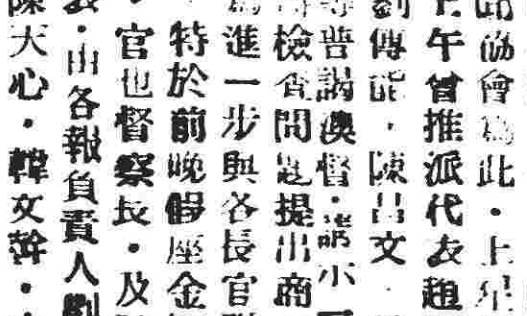 此協會為此·上星
上午曾推派代表趙
劉傳能·陳昌文·
等晉謁澳督·請小
檢查問題提出商
為進一步與各長官
特於前晚假座金
官也督察長·及
表·由各報負責人劉
陳天心·韓文幹·